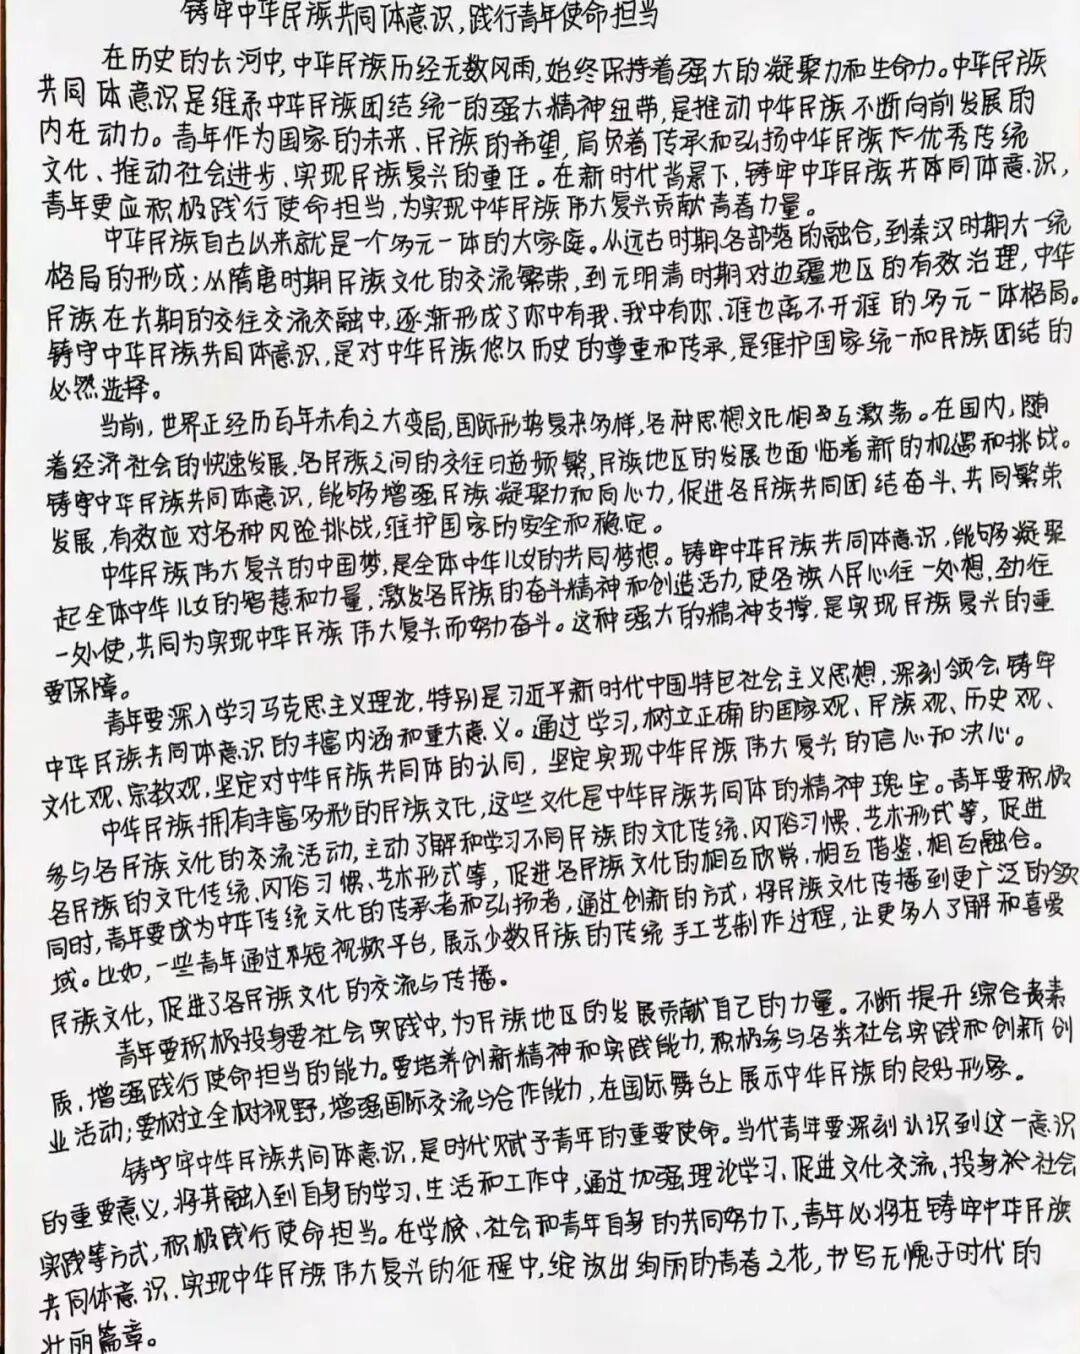 铸牢中华民族共同体意识，践行青年使命担当
在历史的长河中，中华民族历经无数风雨，始终保持着强大的凝聚力和生命力。中华民族
共同体意识是维系中华民族团结统一的强大精神纽带，是推动中华民族不断向前发展的
内在动力。青年作为国家的未来、民族的希望，肩负着传承和弘扬中华民族优秀传统
文化、推动社会进步、实现民族复兴的重任。在新时代背景下，铸牢中华民族共同体意识，
青年更应积极践行使命担当，为实现中华民族伟大复兴贡献青春力量。
中华民族自古以来就是一个多元一体的大家庭。从远古时期各部落的融合，到秦汉时期大一统
格局的形成；从隋唐时期民族文化的交流繁荣，到元明清时期对边疆地区的有效治理，中华
民族在长期的交往交流交融中，逐渐形成了你中有我、我中有你、谁也离不开谁的多元一体格局。
铸守中华民族共同体意识，是对中华民族悠久历史的尊重和传承，是维护国家统一和民族团结的
必然选择。
当前，世界正经历百年未有之大变局，国际形势复杂多样，各种思想文化相互激荡。在国内，随
着经济社会的快速发展，各民族之间的交往日益频繁，民族地区的发展也面临着新的机遇和挑战。
铸守中华民族共同体意识，能够增强民族凝聚力和向心力，促进各民族共同团结奋斗、共同繁荣
发展，有效应对各种风险挑战，维护国家的安全和稳定。
中华民族伟大复兴的中国梦，是全体中华儿女的共同梦想。铸牢中华民族共同体意识，能够凝聚
起全体中华儿女的智慧和力量，激发各民族的奋斗精神和创造活力，使各族人民心往一处想，劲往
一处使，共同为实现中华民族伟大复兴而努力奋斗。这种强大的精神支撑，是实现民族复兴的重
要保障。
青年要深入学习马克思主义理论，特别是习近平新时代中国特色社会主义思想，深刻领会铸牢
中华民族共同体意识的丰富内涵和重大意义。通过学习，树立正确的国家观、民族观、历史观、
文化观、宗教观，坚定对中华民族共同体的认同，坚定实现中华民族伟大复兴的信心和决心。
中华民族拥有丰富多彩的民族文化，这些文化是中华民族共同体的精神瑰宝。青年要积极
参与各民族文化的交流活动，主动了解和学习不同民族的文化传统、风俗习惯、艺术形式等，促进
各民族的文化传统、风俗习惯、艺术形式等，促进各民族文化的相互欣赏、相互借鉴、相互融合。
同时，青年要成为中华传统文化的传承者和弘扬者，通过创新的方式，将民族文化传播到更广泛的领
域。比如，一些青年通过短视频平台，展示少数民族的传统手工艺制作过程，让更多人了解和喜爱
民族文化，促进了各民族文化的交流与传播。
青年要积极投身社会实践中，为民族地区的发展贡献自己的力量。不断提升综合素
质，增强践行使命担当的能力。要培养创新精神和实践能力，积极参与各类社会实践和创新创
业活动；要树立全球视野，增强国际交流与合作能力，在国际舞台上展示中华民族的良好形象。
铸牢中华民族共同体意识，是时代赋予青年的重要使命。当代青年要深刻认识到这一意识
的重要意义，将其融入到自身的学习、生活和工作中，通过加强理论学习、促进文化交流、投身于社会
实践等方式，积极践行使命担当。在学校、社会和青年自身的共同努力下，青年必将在铸牢中华民族
共同体意识、实现中华民族伟大复兴的征程中，绽放出绚丽的青春之花，书写无愧于时代的
壮丽篇章。